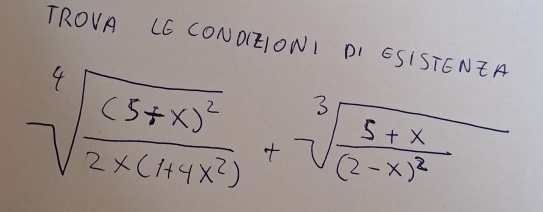 TROVA LE CONDIZIONI DI ESISTENZA
⁴√((5+x)² / (2x(1+4x²))) + ³√((5+x) / (2-x)²)